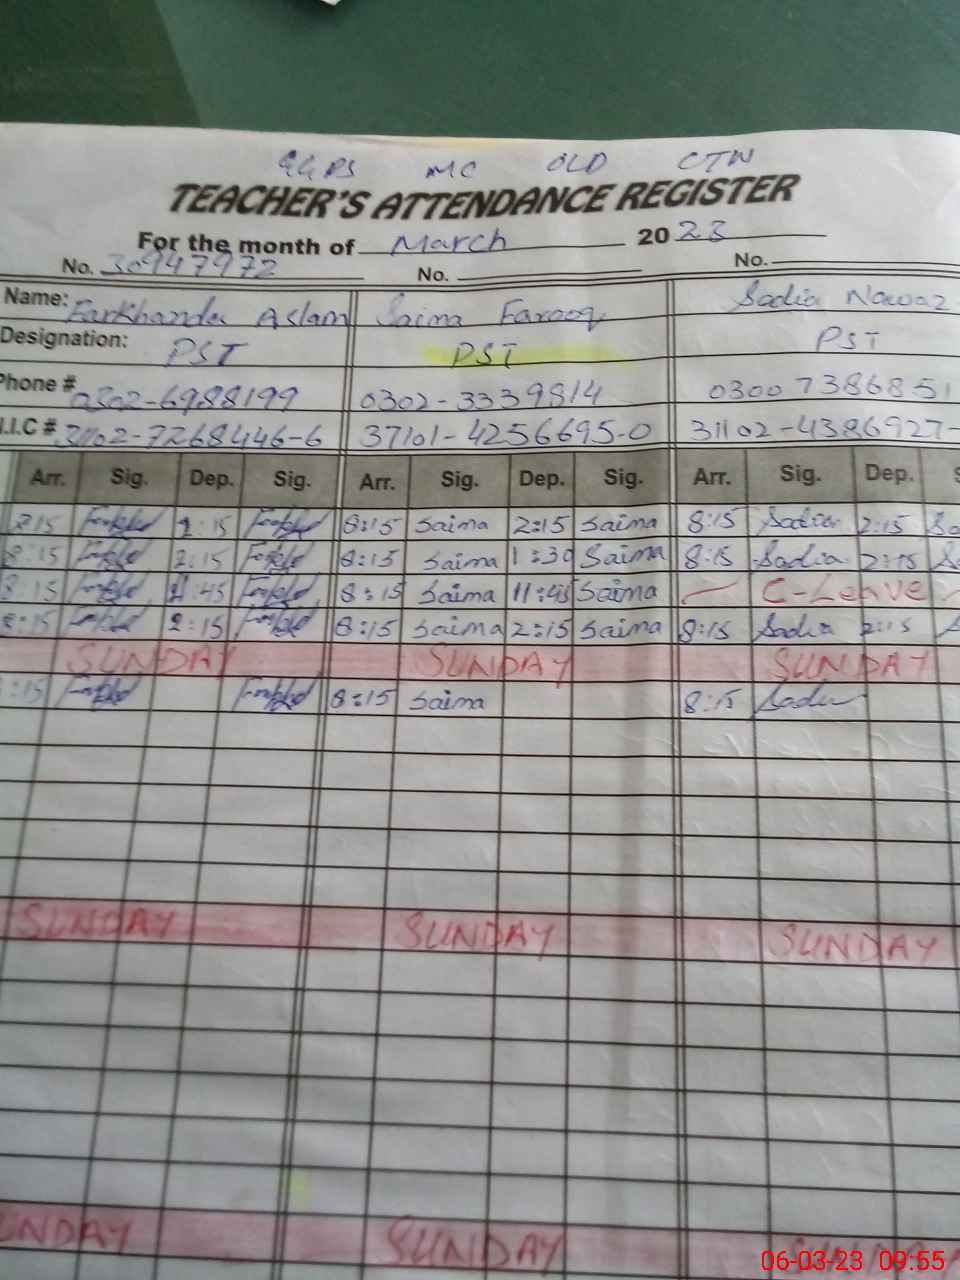 GGPS MC OLD CTN
TEACHER'S ATTENDANCE REGISTER
For the month of March 2023
No. 30947972 No. No.
Name: Farkhanda Aslam Saima Farooq Sadia Nawaz
Designation: PST PST PST
Phone # 0302-6988199 0302-3339814 0300 7386851
I.I.C # 31102-7268446-6 37101-4256695-0 31102-4386927-
Arr. Sig. Dep. Sig. Arr. Sig. Dep. Sig. Arr. Sig. Dep. S
8:15 2:15 8:15 Saima 2:15 Saima 8:15 Sadia 2:15 Sa
8:15 2:15 8:15 Saima 1:30 Saima 8:15 Sadia 2:15 Sa
8:15 11:45 8:15 Saima 11:45 Saima C-Leave
8:15 2:15 8:15 Saima 2:15 Saima 8:15 Sadia 2:15 S
SUNDAY SUNDAY SUNDAY
:15 8:15 Saima 8:15 Sadia
SUNDAY SUNDAY SUNDAY
UNDAY SUNDAY SUNDA
06-03-23 09:55